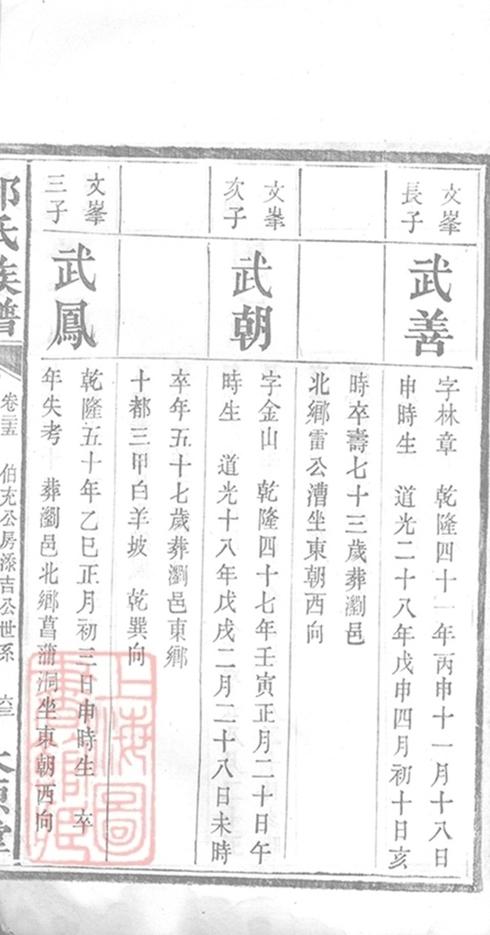 文峯
長子
武善
字林章　乾隆四十一年丙申十一月十八日
申時生　道光二十八年戊申四月初十日亥
時卒壽七十三歲葬瀏邑
北鄉雷公漕坐東朝西向
文峯
次子
武朝
字金山　乾隆四十七年壬寅正月二十日午
時生　道光十八年戊戌二月二十八日未時
卒年五十七歲葬瀏邑東鄉
十都三甲白羊坡　乾巽向
文峯
三子
武鳳
乾隆五十年乙巳正月初三日申時生　卒
年失考　葬瀏邑北鄉菖蒲洞坐東朝西向
氏族譜
卷三五　伯充公房添吉公世系　六三
上海圖